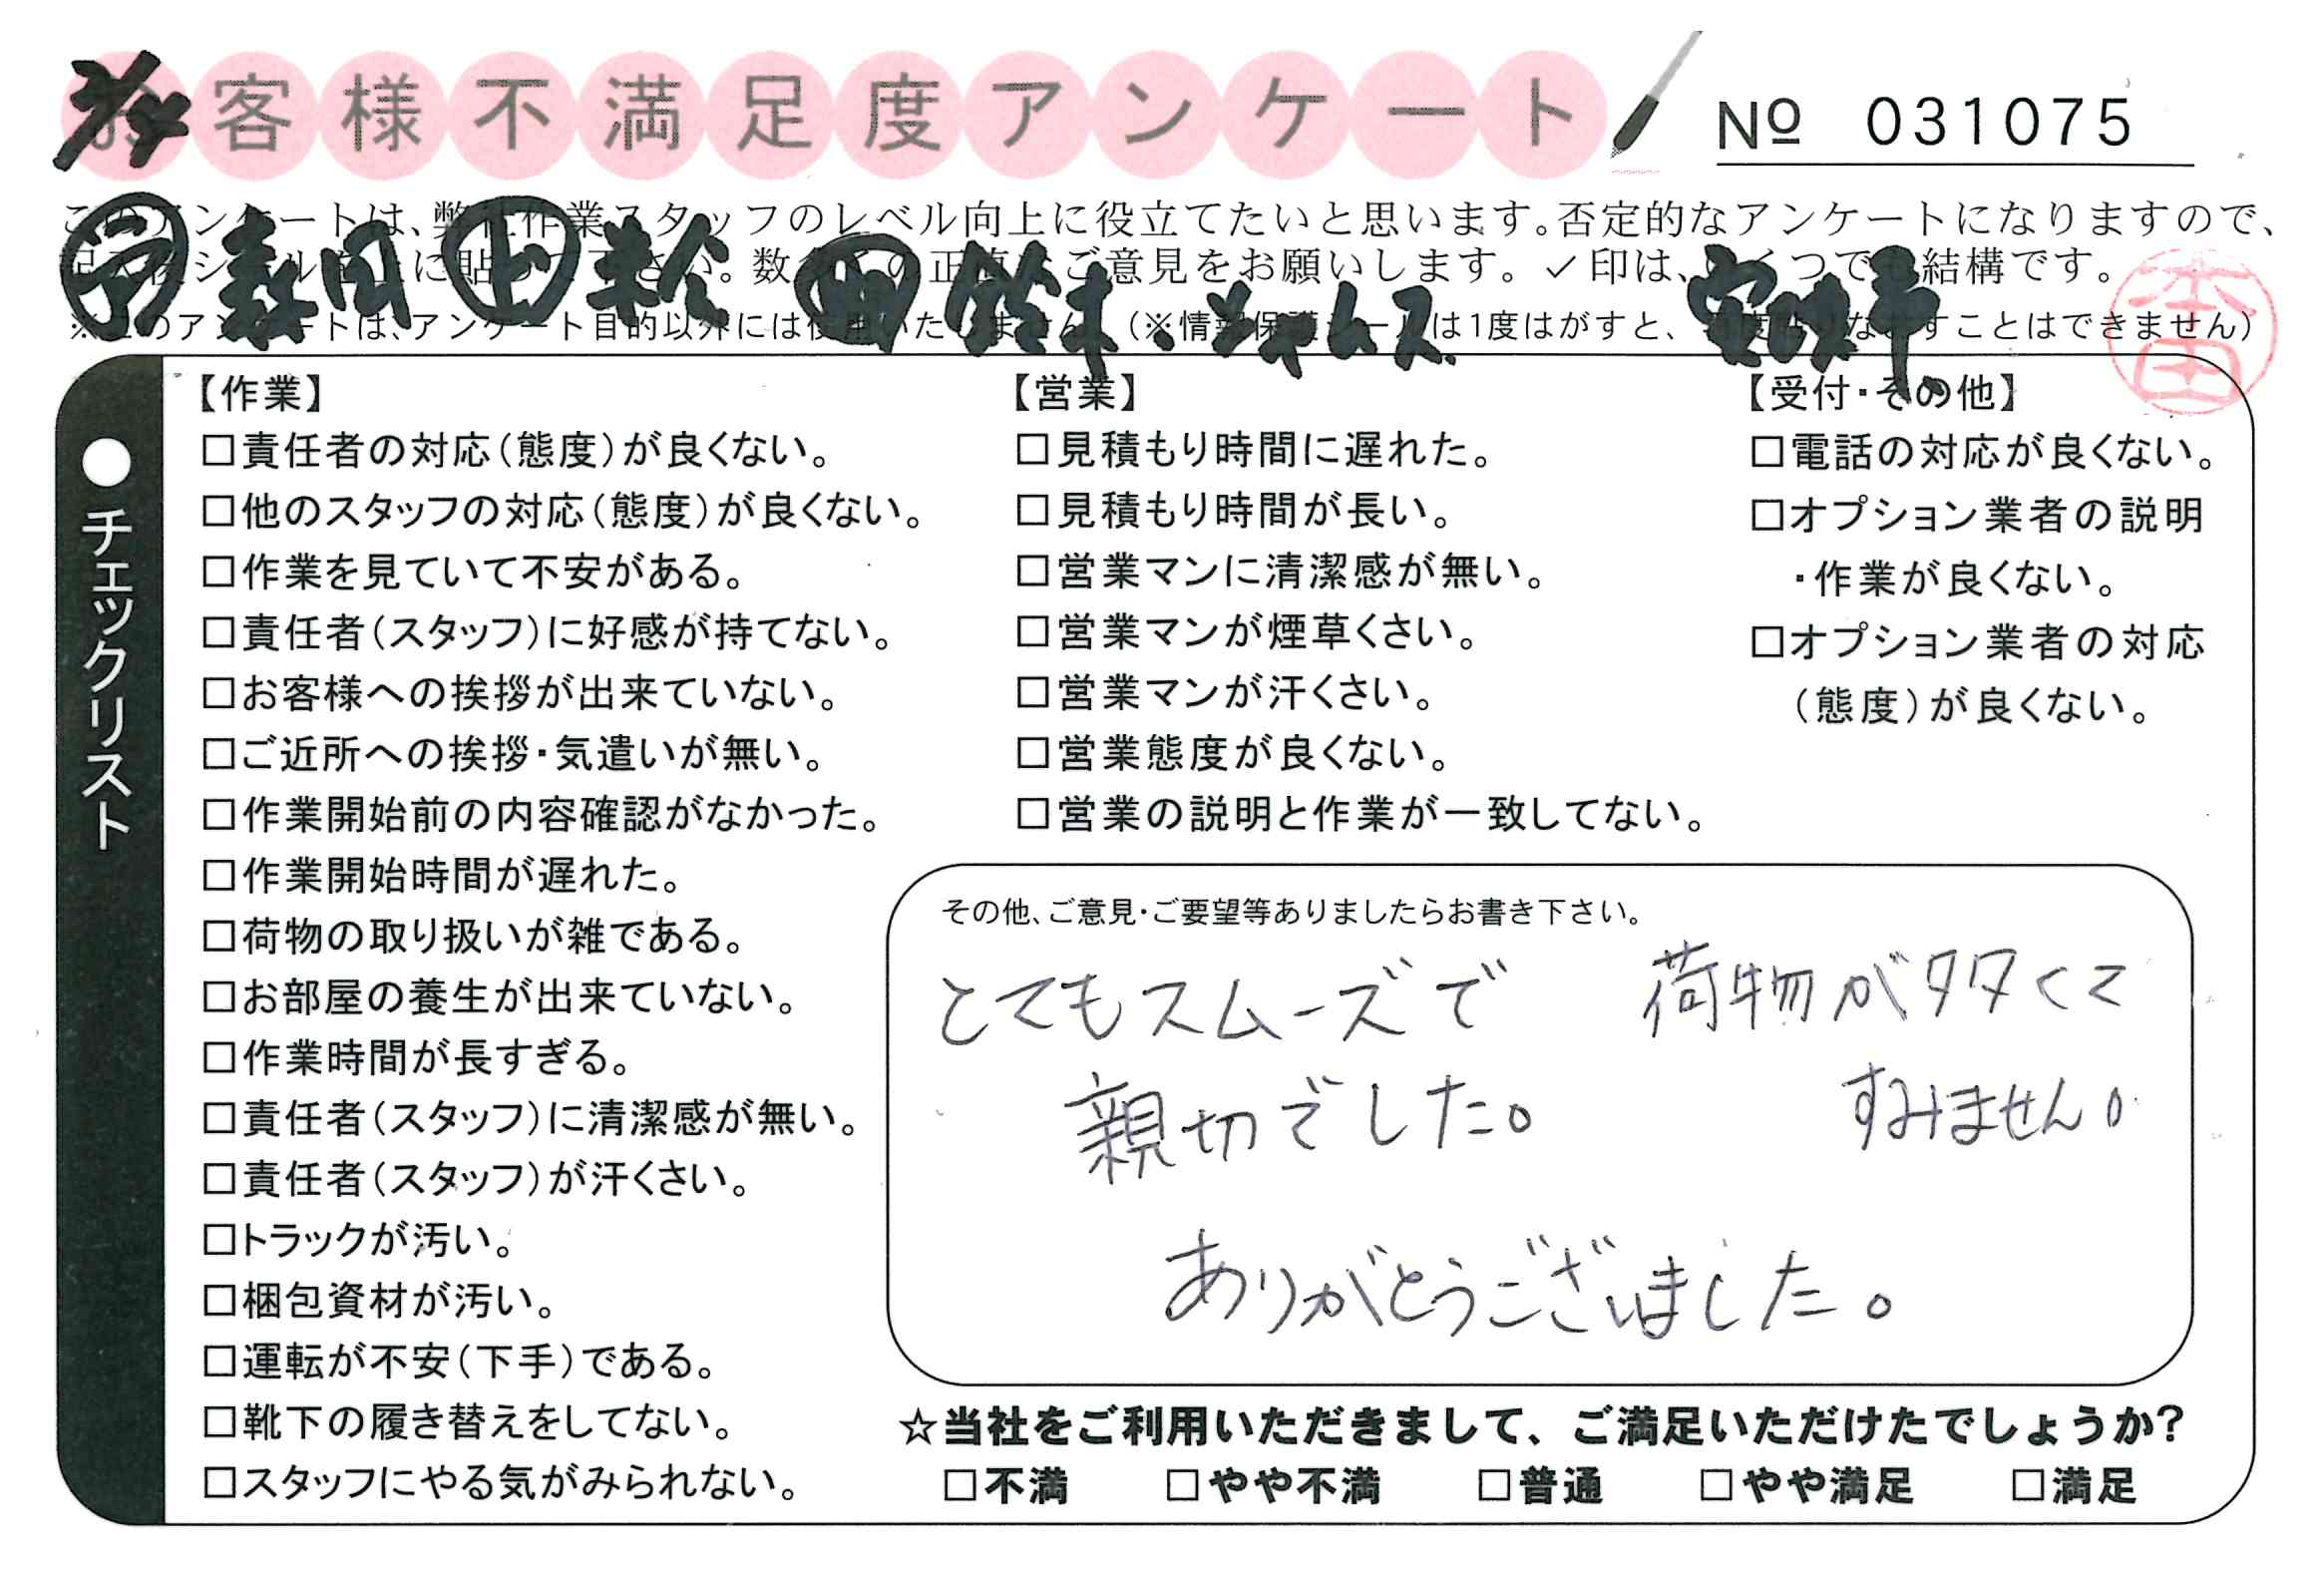 お客様不満足度アンケート
No 031075
このアンケートは、弊社作業スタッフのレベル向上に役立てたいと思います。否定的なアンケートになりますので、
に貼って下さい。数多くの正直なご意見をお願いします。✓印は、いくつでも結構です。
※このアンケートは、アンケート目的以外には使用いたしません。(※情報保護シールは1度はがすと、再度はりなおすことはできません)
森岡 上 末松 鈴木・シャムス
本田
●チェックリスト
【作業】
□責任者の対応(態度)が良くない。
□他のスタッフの対応(態度)が良くない。
□作業を見ていて不安がある。
□責任者(スタッフ)に好感が持てない。
□お客様への挨拶が出来ていない。
□ご近所への挨拶・気遣いが無い。
□作業開始前の内容確認がなかった。
□作業開始時間が遅れた。
□荷物の取り扱いが雑である。
□お部屋の養生が出来ていない。
□作業時間が長すぎる。
□責任者(スタッフ)に清潔感が無い。
□責任者(スタッフ)が汗くさい。
□トラックが汚い。
□梱包資材が汚い。
□運転が不安(下手)である。
□靴下の履き替えをしてない。
□スタッフにやる気がみられない。
【営業】
□見積もり時間に遅れた。
□見積もり時間が長い。
□営業マンに清潔感が無い。
□営業マンが煙草くさい。
□営業マンが汗くさい。
□営業態度が良くない。
□営業の説明と作業が一致してない。
【受付・その他】
□電話の対応が良くない。
□オプション業者の説明
・作業が良くない。
□オプション業者の対応
(態度)が良くない。
その他、ご意見・ご要望等ありましたらお書き下さい。
とてもスムーズで
親切でした。
荷物が多くて
すみません。
ありがとうございました。
☆当社をご利用いただきまして、ご満足いただけたでしょうか?
□不満 □やや不満 □普通 □やや満足 □満足